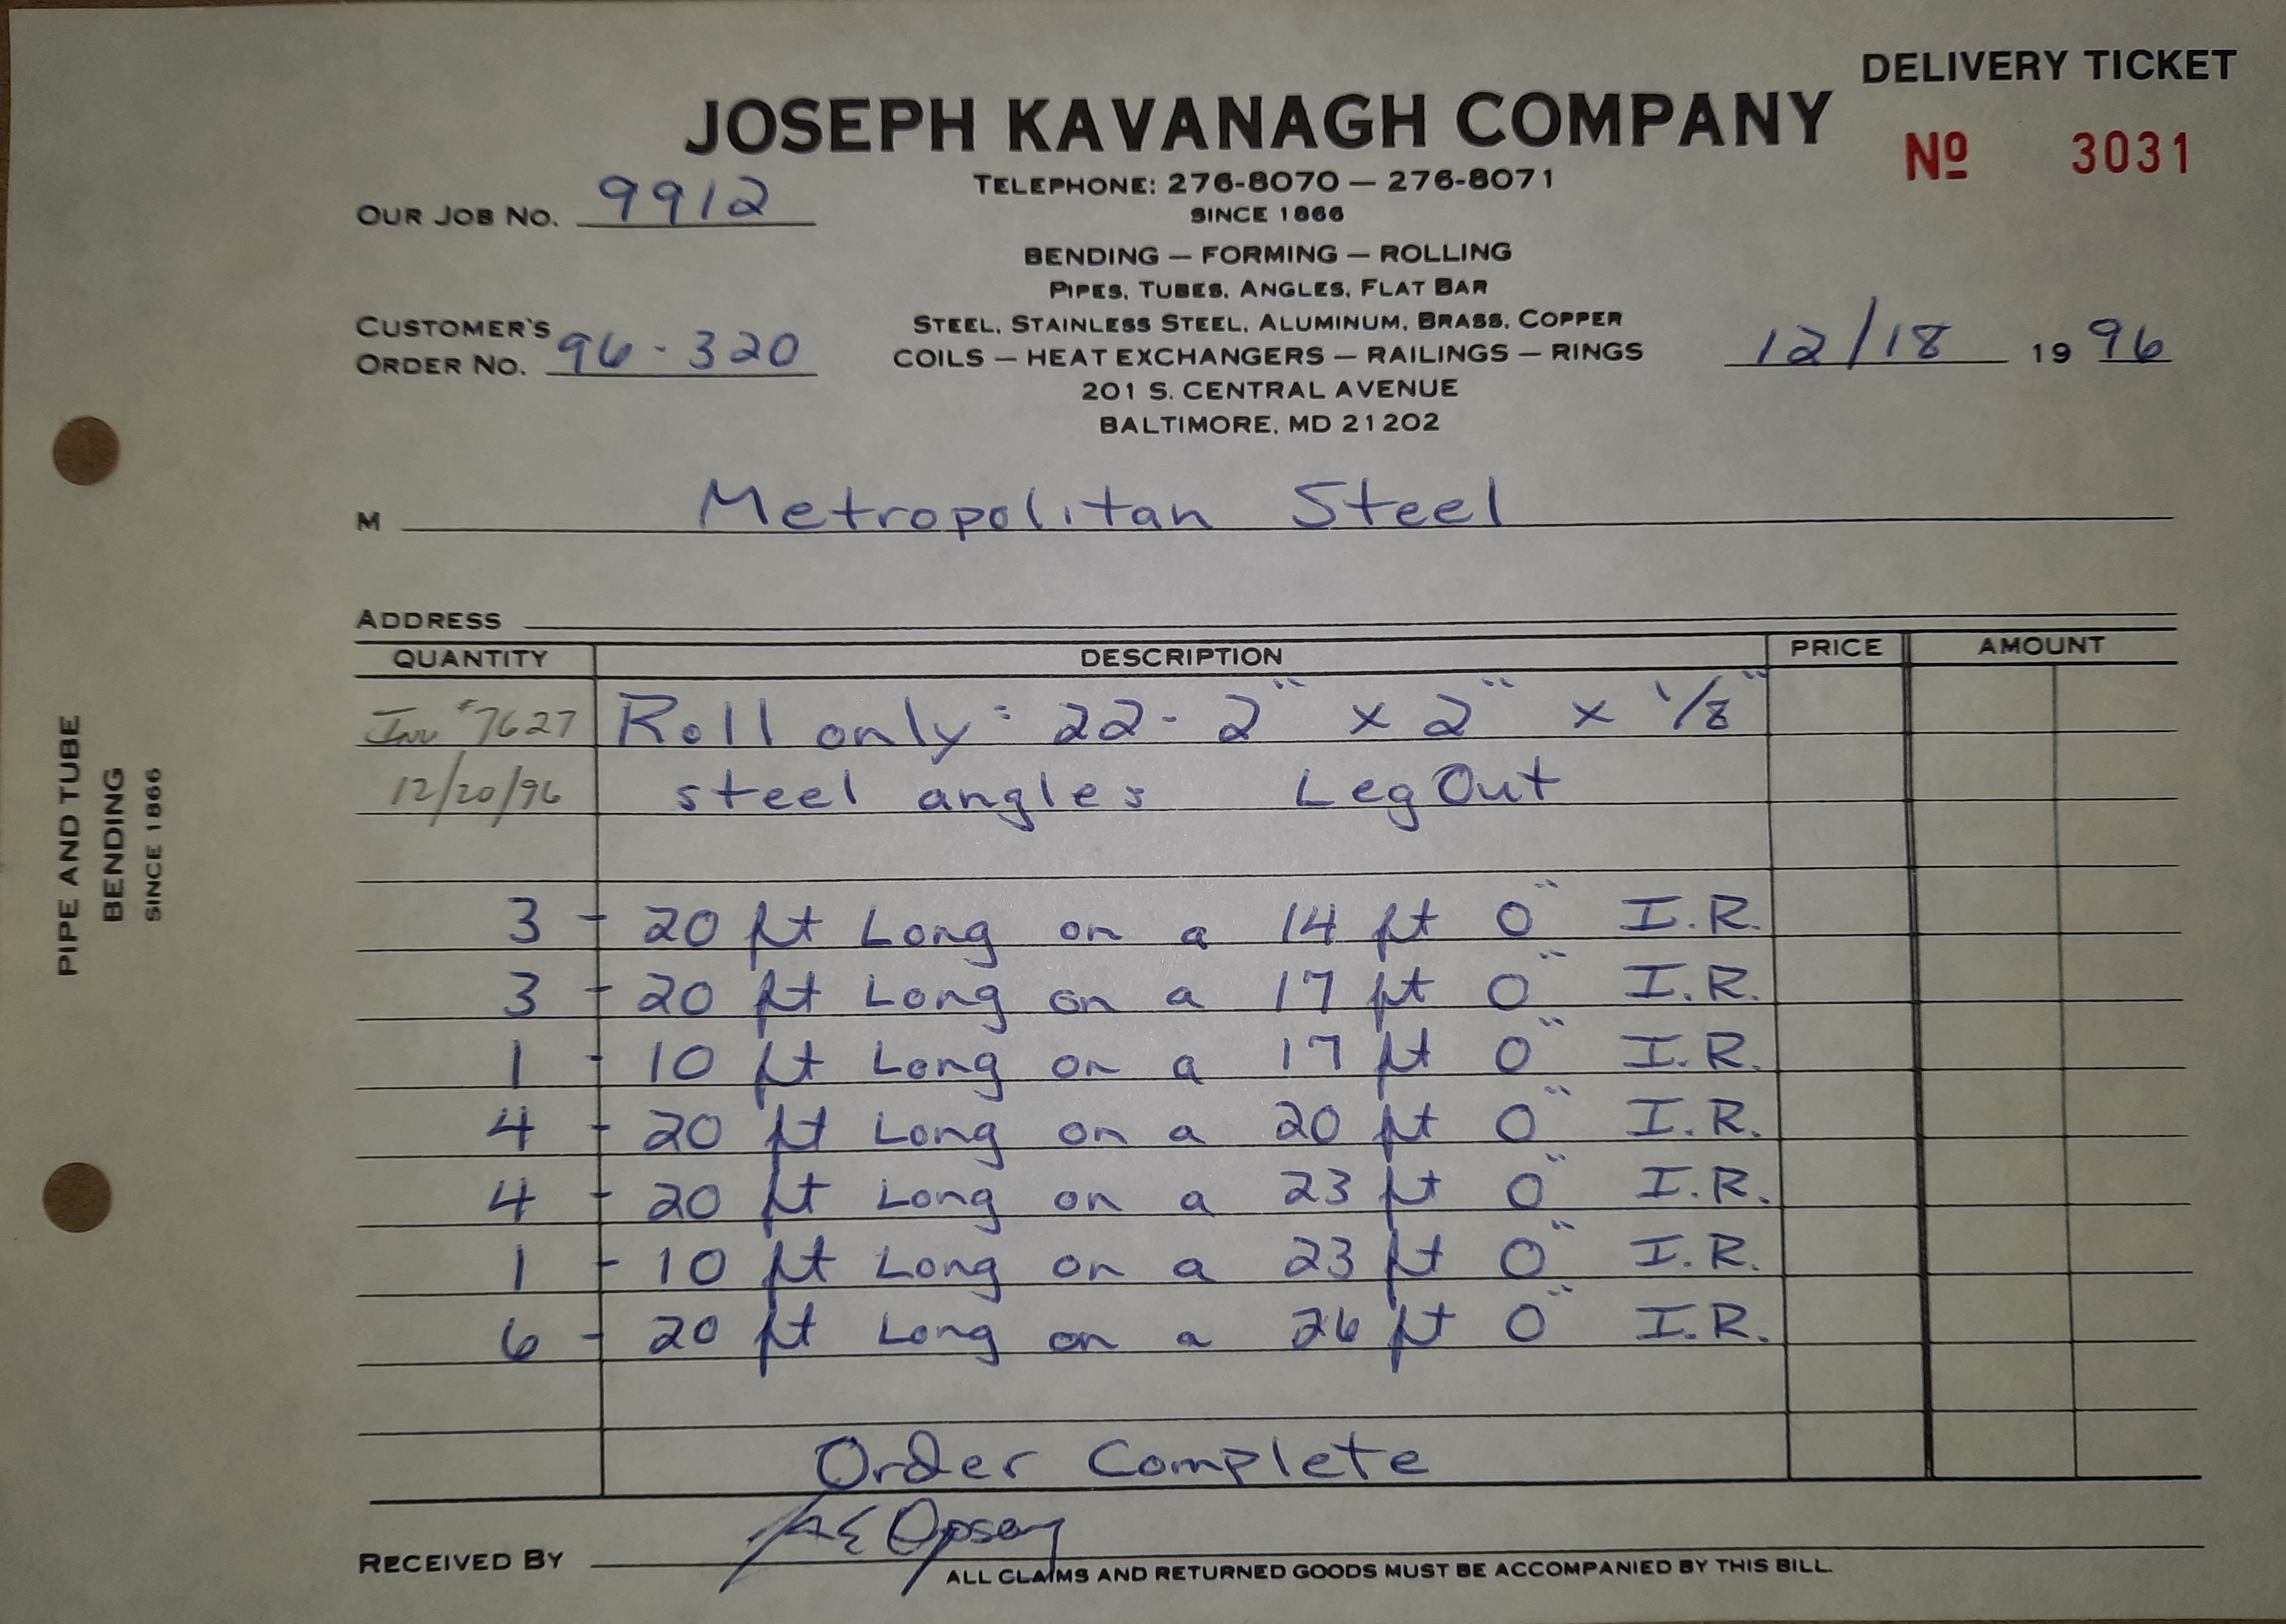 DELIVERY TICKET
JOSEPH KAVANAGH COMPANY
Nº 3031
TELEPHONE: 276-8070 — 276-8071
SINCE 1866
OUR JOB NO. 9912
BENDING — FORMING — ROLLING
PIPES, TUBES, ANGLES, FLAT BAR
STEEL, STAINLESS STEEL, ALUMINUM, BRASS, COPPER
CUSTOMER'S
ORDER NO. 96-320
COILS — HEAT EXCHANGERS — RAILINGS — RINGS
12/18 1996
201 S. CENTRAL AVENUE
BALTIMORE, MD 21202
M Metropolitan Steel
ADDRESS
QUANTITY DESCRIPTION PRICE AMOUNT
Inv #7627 Roll only: 22- 2" x 2" x 1/8"
12/20/96 steel angles Leg Out
3 - 20 ft Long on a 14 ft 0" I.R.
3 - 20 ft Long on a 17 ft 0" I.R.
1 - 10 ft Long on a 17 ft 0" I.R.
4 - 20 ft Long on a 20 ft 0" I.R.
4 - 20 ft Long on a 23 ft 0" I.R.
1 - 10 ft Long on a 23 ft 0" I.R.
6 - 20 ft Long on a 26 ft 0" I.R.
Order Complete
RECEIVED BY
ALL CLAIMS AND RETURNED GOODS MUST BE ACCOMPANIED BY THIS BILL.
PIPE AND TUBE
BENDING
SINCE 1866